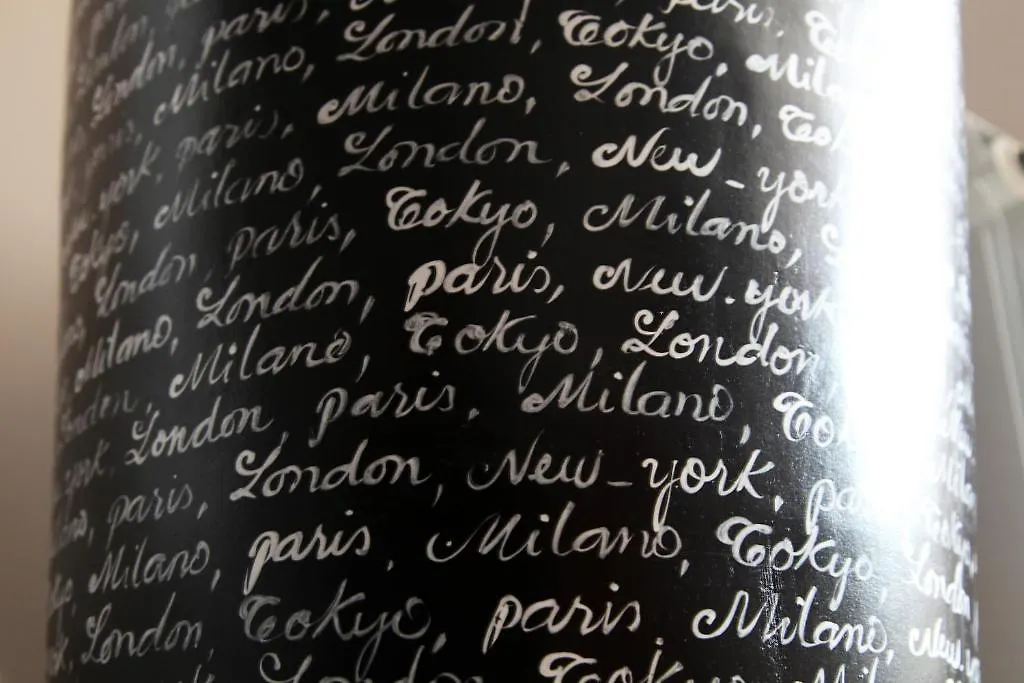 London, paris,
Milano, London, Tokyo, Mila
york, paris, Milano, London, To
Tokyo, Milano, London, New-york
London, paris, Tokyo, Milano,
Milano, London, paris, New.york
London, Milano, Tokyo, London
york, London, paris, Milano, To
paris, London, New-york, pa
Milano, paris, Milano, Tokyo, London
London, Tokyo, paris, Milano, New
London Tokyo